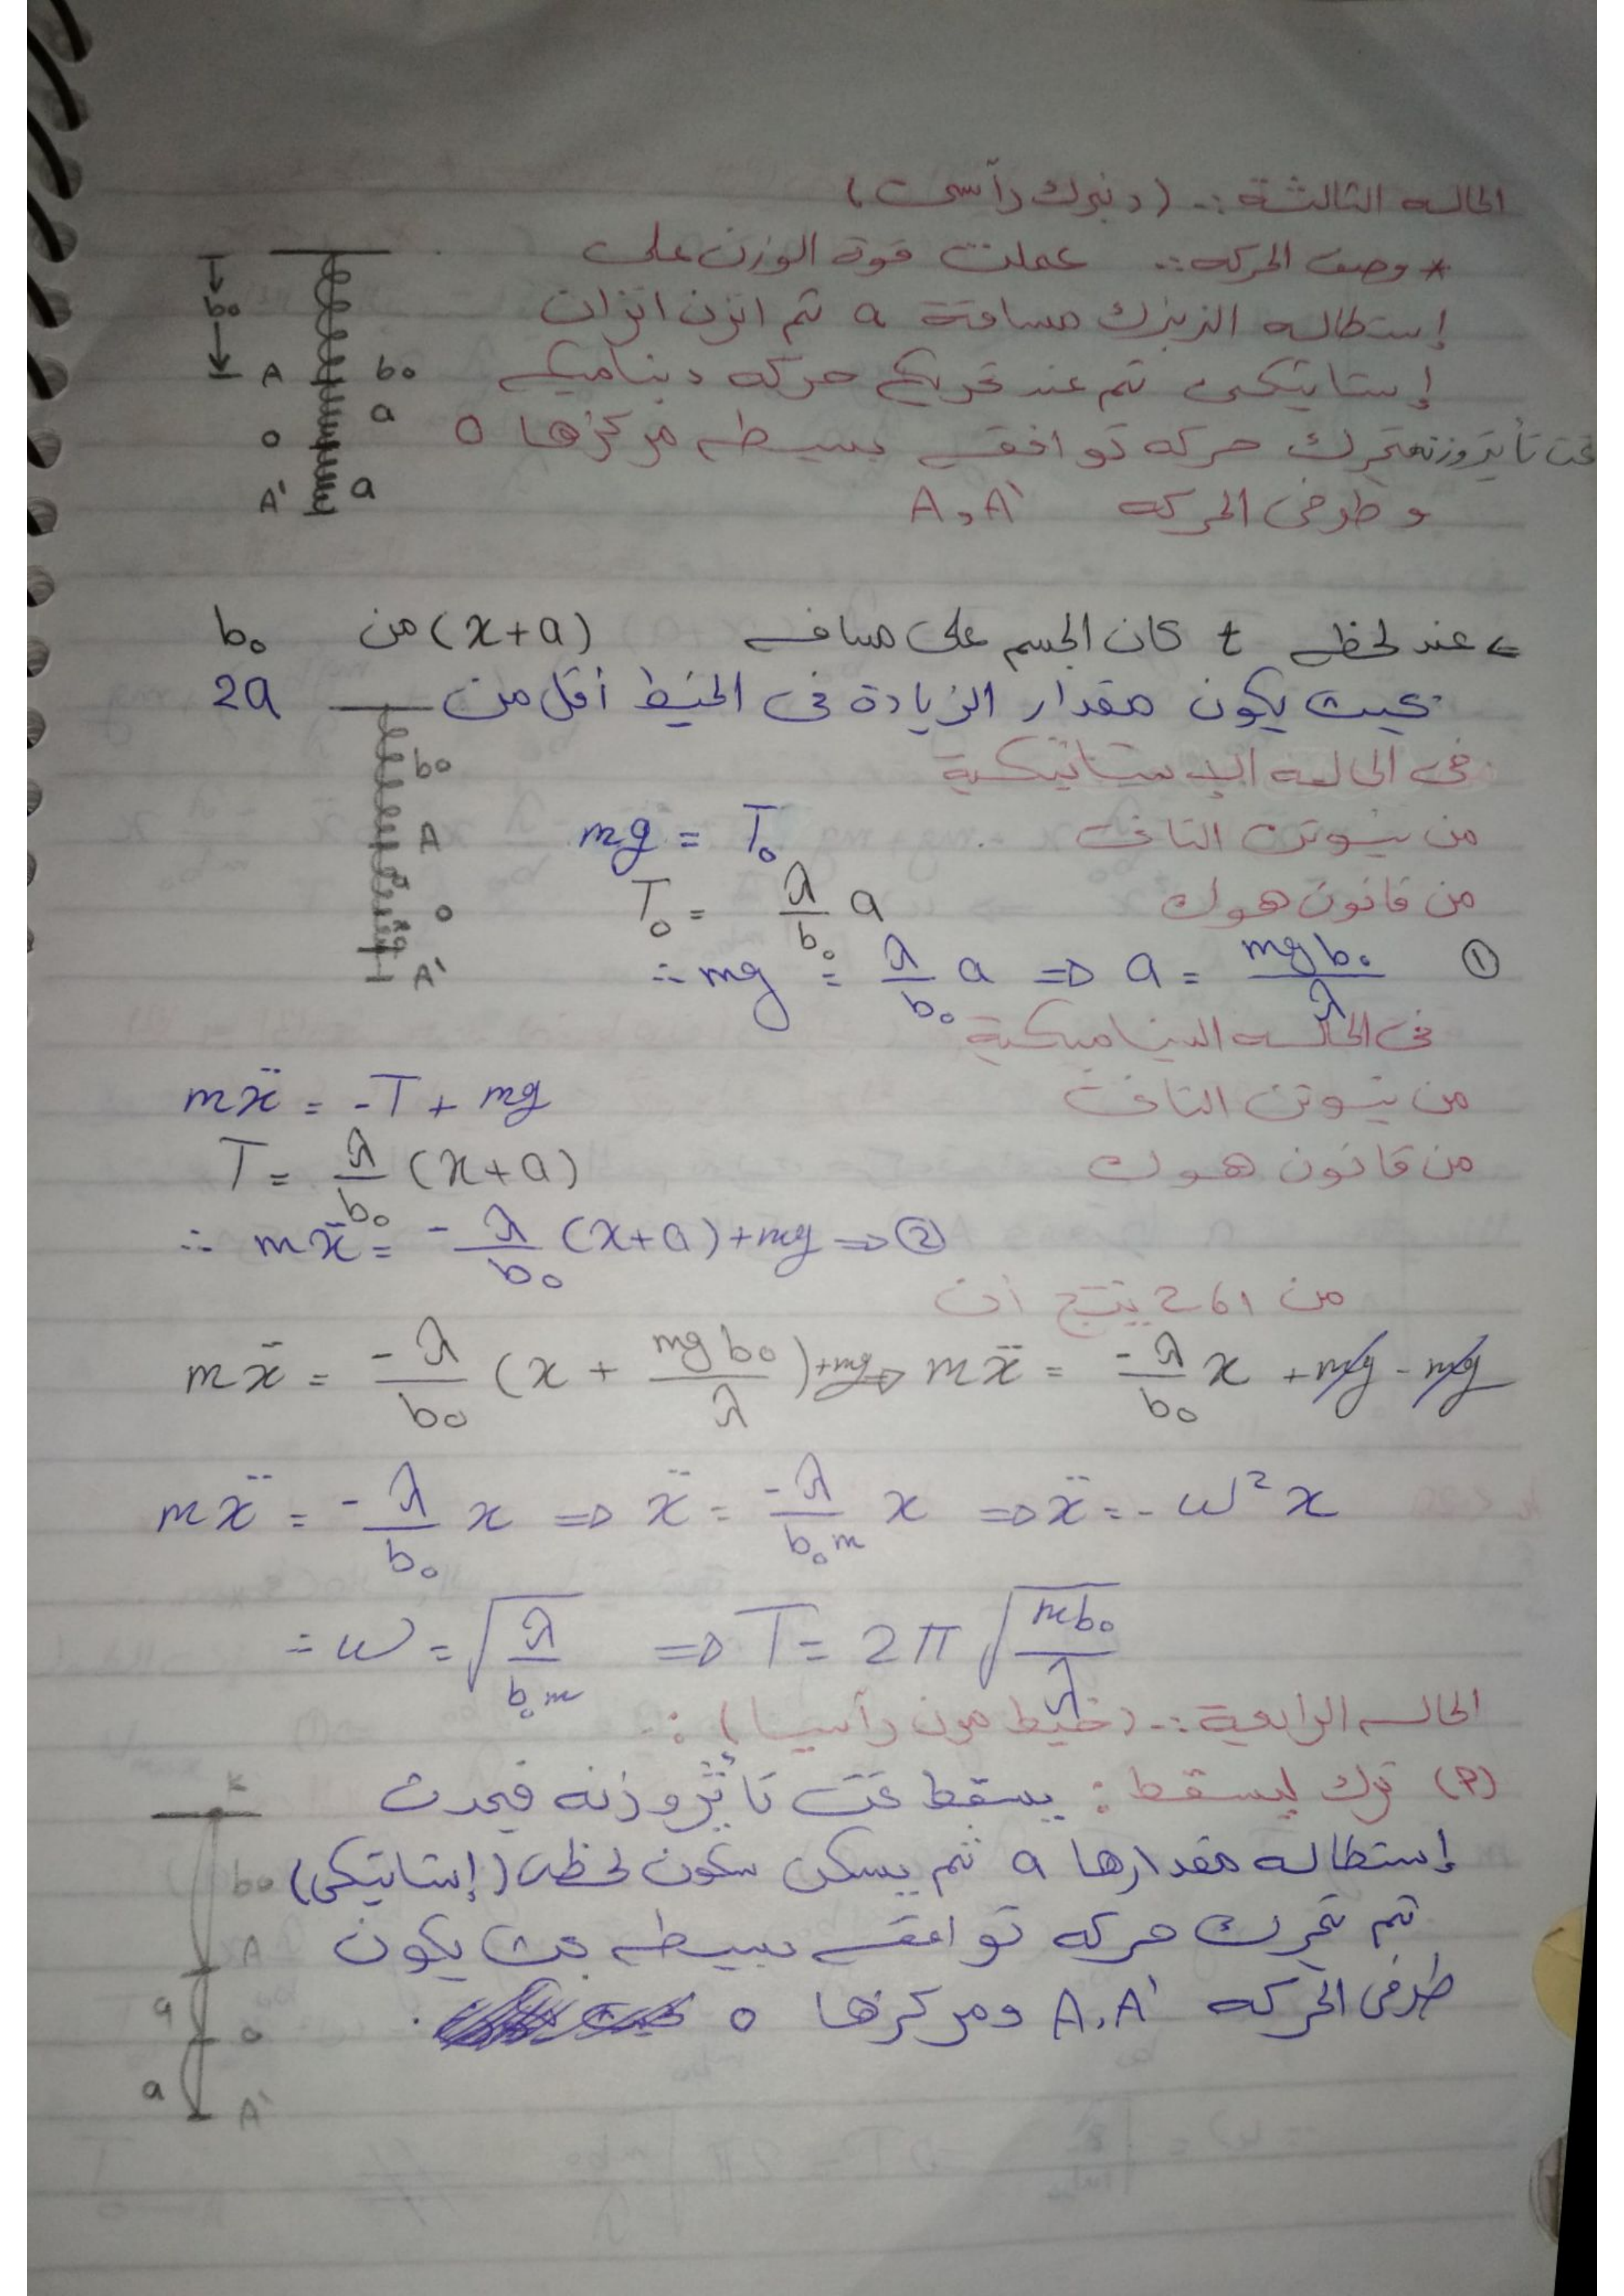 الحاله الثالثة :- (زنبرك رأسى)
* وصف الحركه :- عملت قوة الوزن على
إستطاله الزنبرك مسافة a ثم اتزن اتزان
إستاتيكى ثم عند تحريك حركه ديناميكيه
تحت تأثير وزنه تحرك حركه توافقيه بسيطه مركزها o
و طرفى الحركه A, A'
b₀
A b₀
a
o
A' a
← عند لحظه t كان الجسم على مسافه (x+a) من b₀
بحيث يكون مقدار الزيادة فى الخيط أقل من 2a
فى الحاله الإستاتيكية
b₀
A
o
A'
من نيوتن الثانى mg = T₀
من قانون هوك T₀ = λ/b₀ a
∴ mg = λ/b₀ a ⇒ a = mgb₀/λ ①
فى الحاله الديناميكية
من نيوتن الثانى mẍ = -T + mg
من قانون هوك T = λ/b₀ (x+a)
∴ mẍ = -λ/b₀ (x+a) + mg ⇒ ②
من 1 و 2 ينتج أن
mẍ = -λ/b₀ (x + mgb₀/λ) + mg ⇒ mẍ = -λ/b₀ x + mg - mg
mẍ = -λ/b₀ x ⇒ ẍ = -λ/b₀m x ⇒ ẍ = -ω² x
∴ ω = √(λ/b₀m) ⇒ T = 2π √(mb₀/λ)
الحاله الرابعة :- (خيط مرن رأسيا) :-
(P) ترك ليسقط : يسقط تحت تأثير وزنه فيحدث
إستطاله مقدارها a ثم يسكن سكون لحظى (إستاتيكى)
ثم تحرك حركه توافقيه بسيطه بحيث يكون
طرفى الحركه A, A' ومركزها o
b₀
A
a
o
a
A'